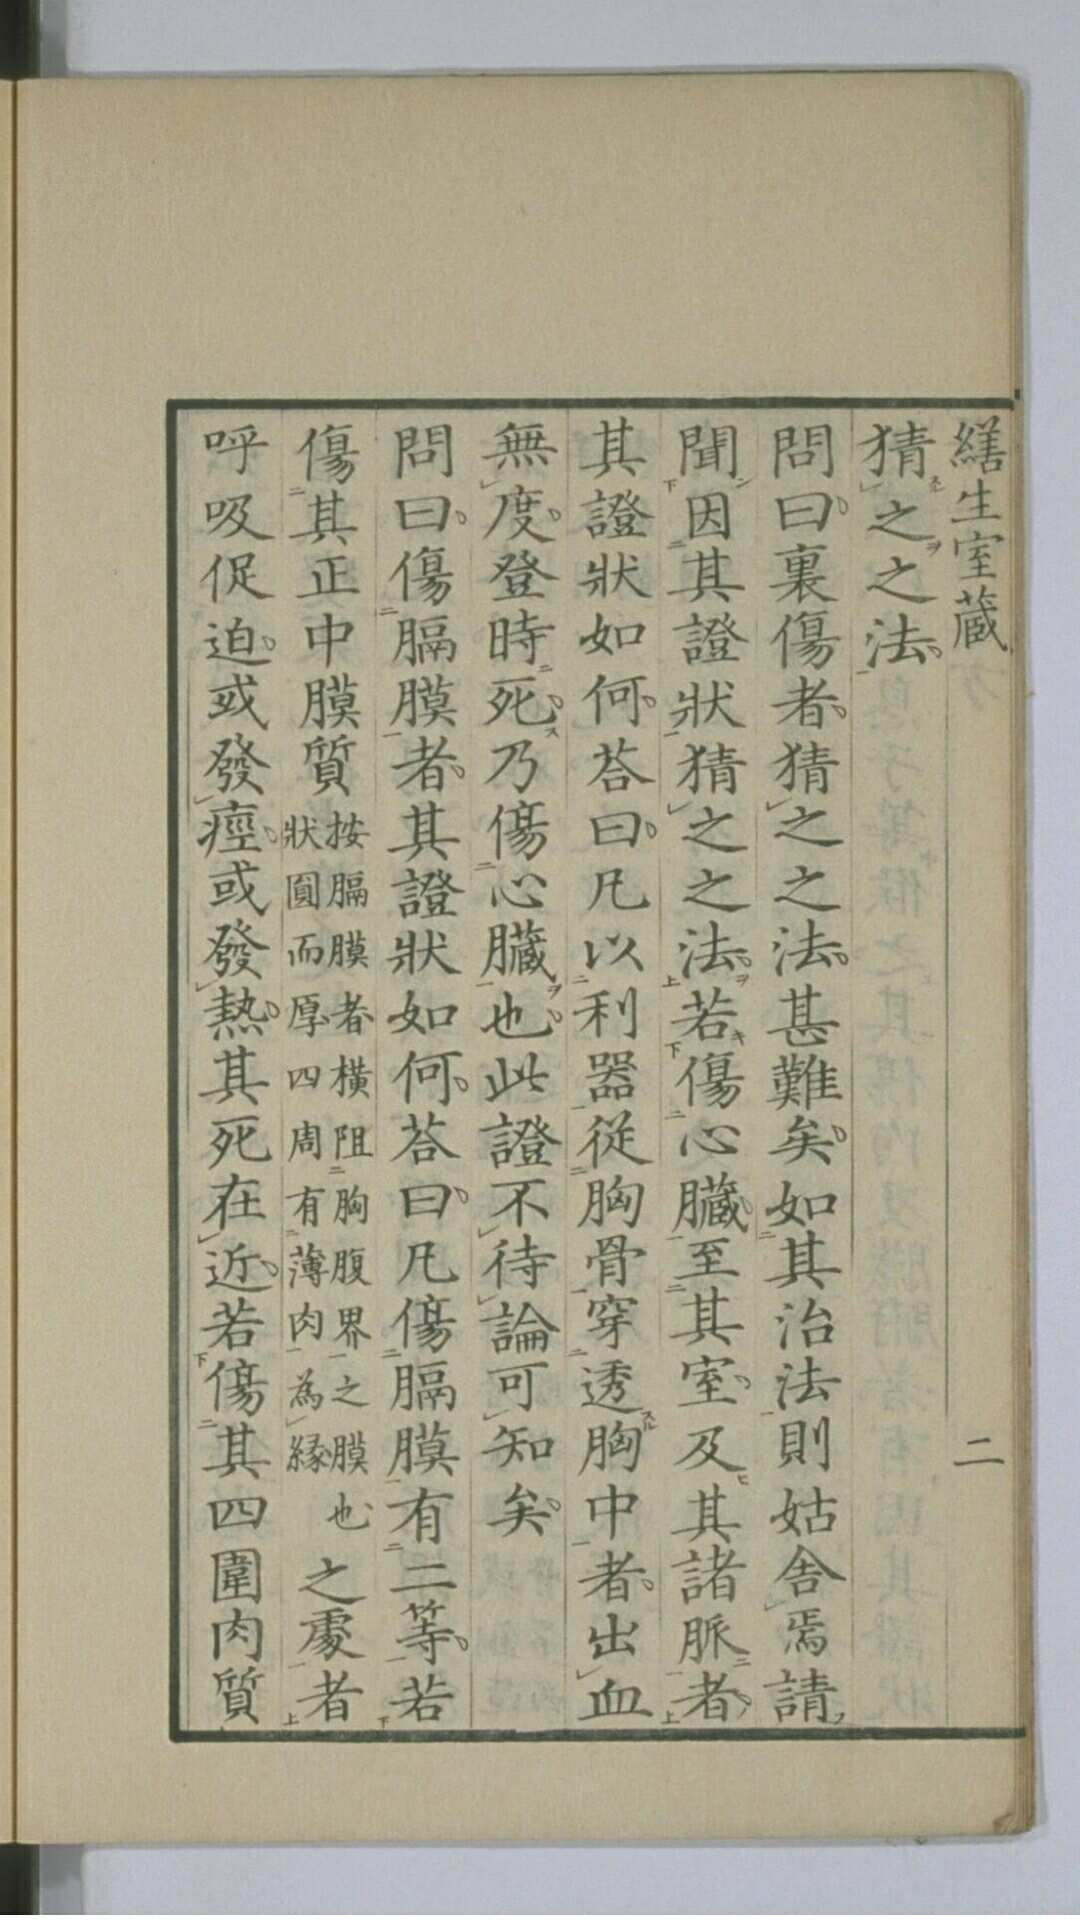 繕生室蔵
二
猜之之法
問曰裏傷者猜之之法甚難矣如其治法則姑舎焉請
聞因其證狀猜之之法若傷心臓至其室及其諸脈者
其證狀如何荅曰凡以利器從胸骨穿透胸中者出血
無度登時死乃傷心臓也此證不待論可知矣
問曰傷膈膜者其證狀如何荅曰凡傷膈膜有二等若
傷其正中膜質
按膈膜者横阻胸腹界之膜也
狀圓而厚四周有薄肉為縁
之處者
呼吸促迫或發痙或發熱其死在近若傷其四圍肉質